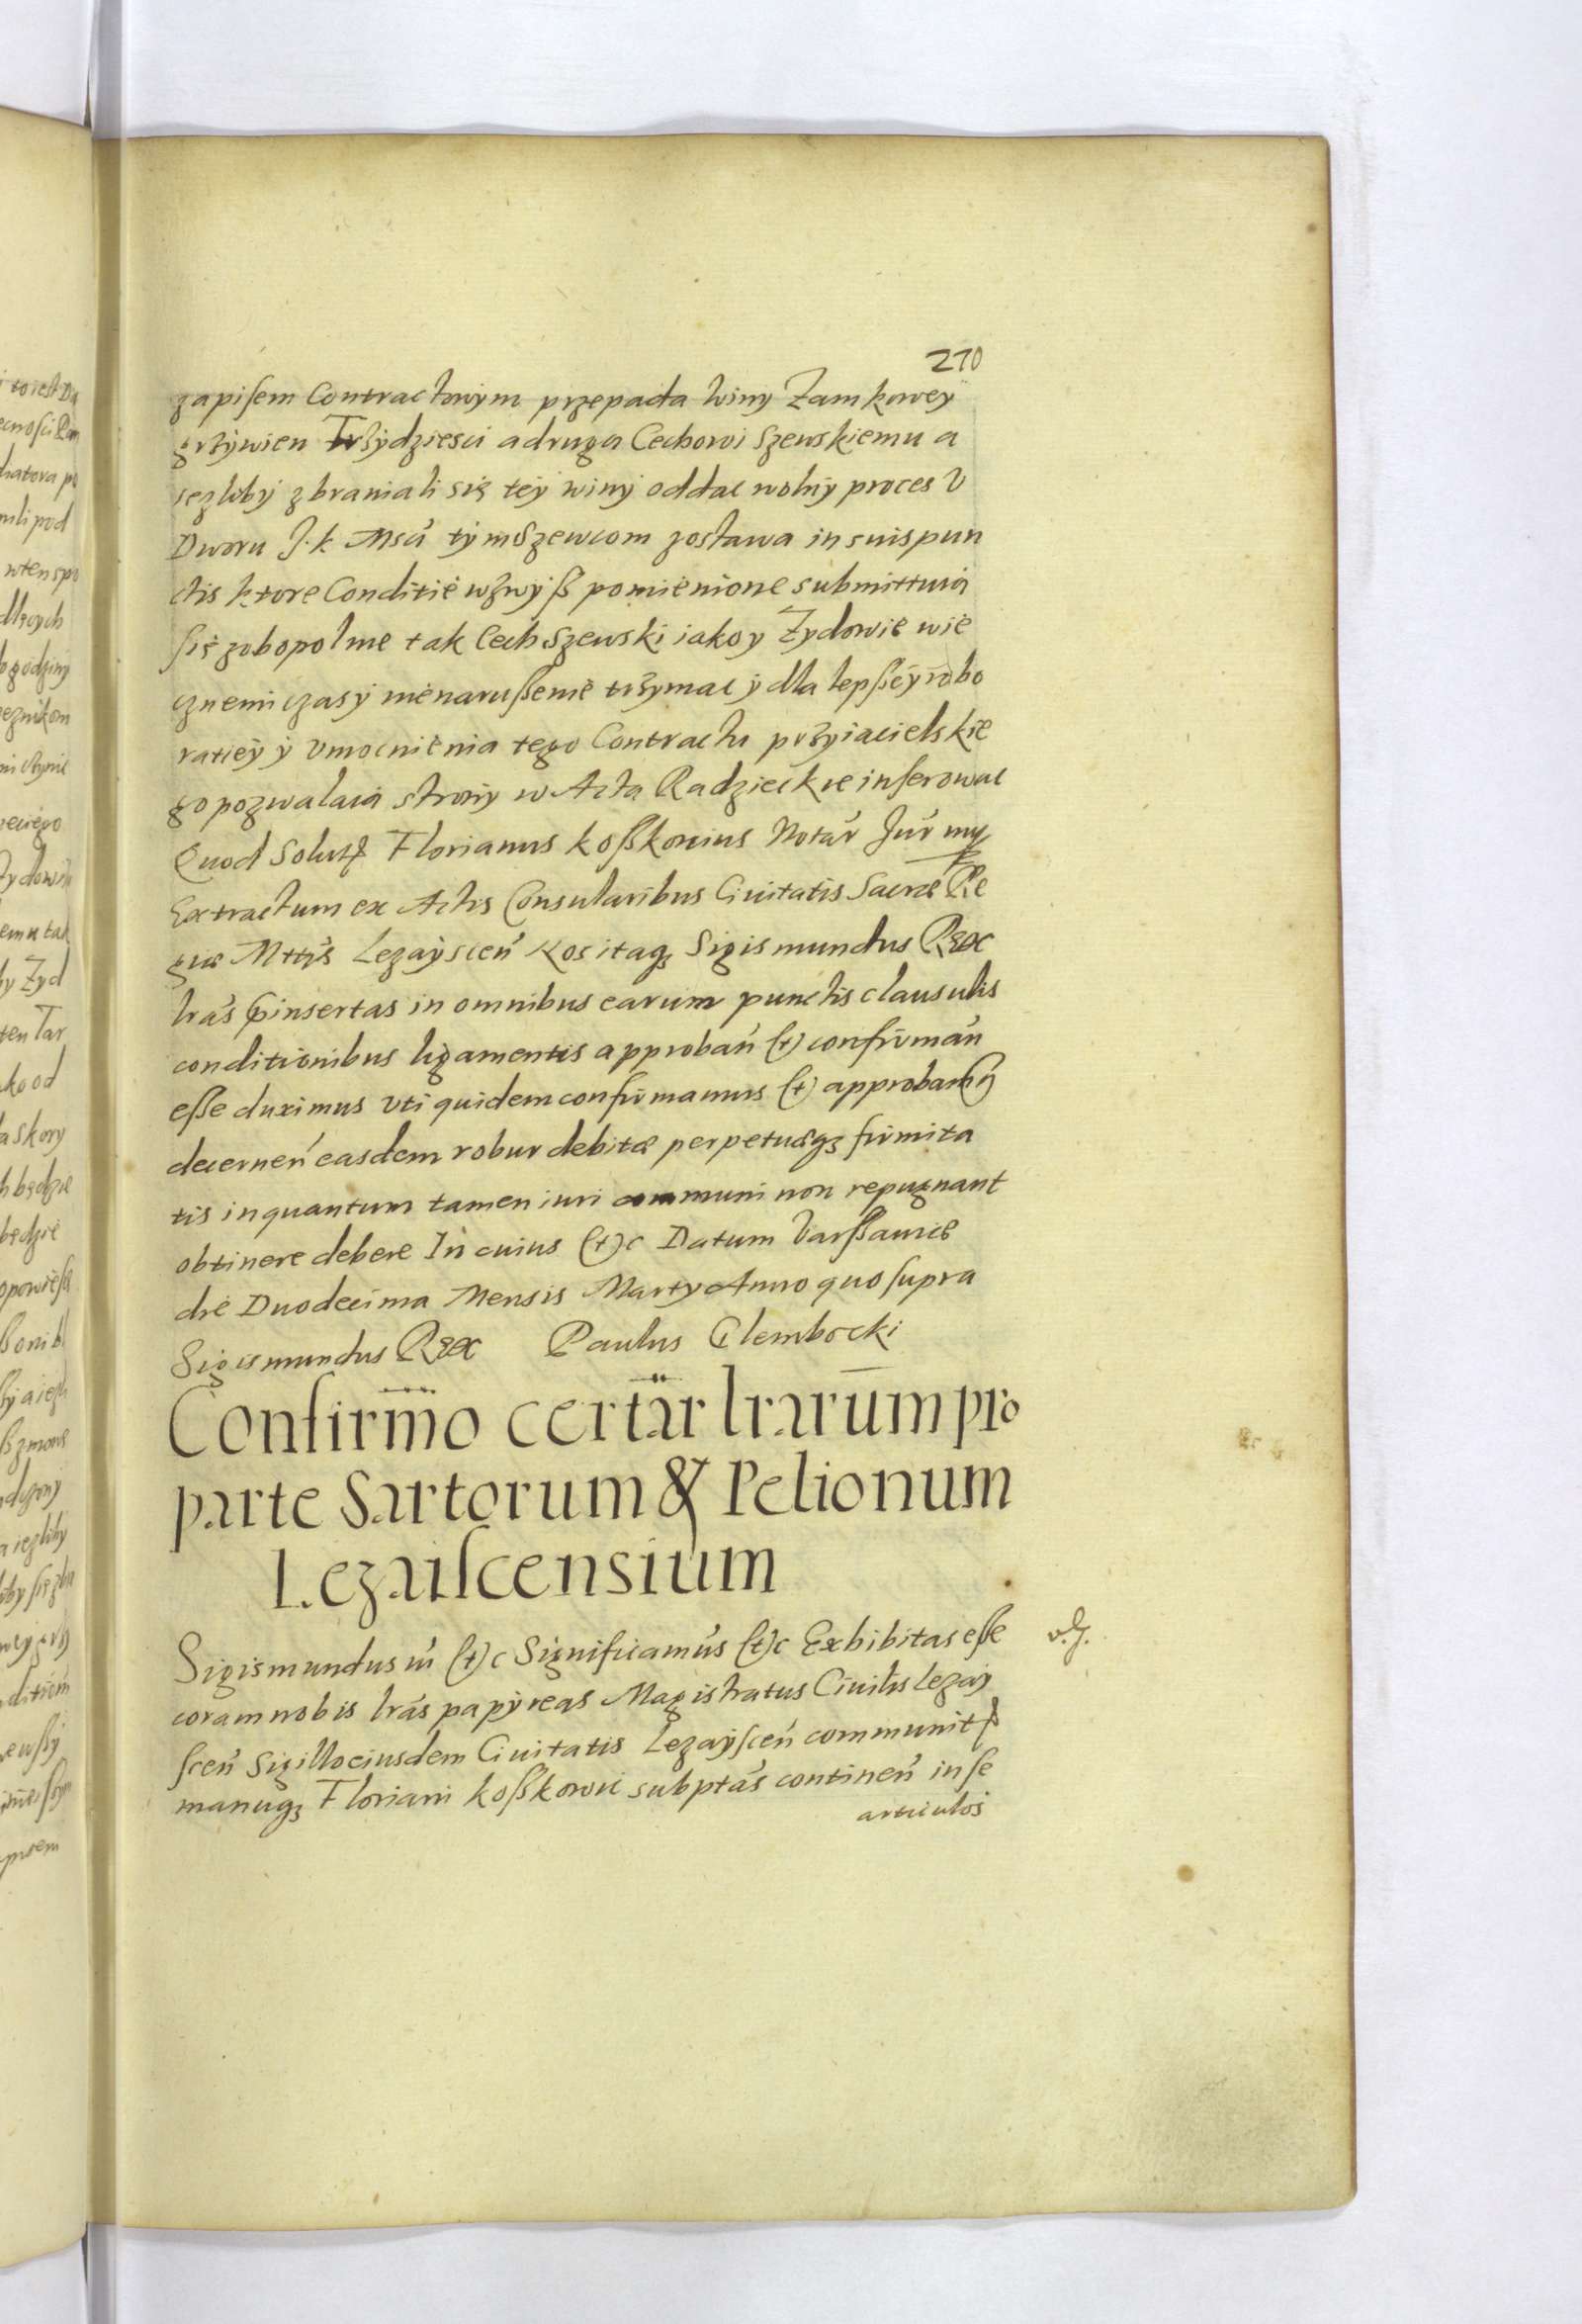 270
zapisem Contractowym przepada winy Zamkowey
grzÿwien Trzÿdziesci a druga Cechowi Szewskiemu a
iezliby zbraniali się teÿ winÿ oddac wolnÿ proces V
Dworu J. k Msci tÿm Szewcom zostawa in suis pun
ctis ktore Conditie wzwÿß pomienione submittuią
się zobopolnie tak Cech Szewski iako y Zydowie wie
cznemi czasÿ nienarußenie trzÿmac ÿ dla lepßeÿ robo
ratieÿ ÿ vmocnienia tego Contractu przyiacielskie
go pozwalaią stronÿ w Acta Radzieckie inserowac
Quod Solut Florianus Koßkouius Notar Jur
Extractum ex Actis Consularibus Ciuitatis Sacræ Re
giæ Mttis Lezaÿscen Nos itaq Sigismundus Rex
lras pinsertas in omnibus earum punctis clausulis
conditionibus ligamentis approban (et) confirman
esse duximus vti quidem confirmamus (et) approbam
decernen easdem robur debitæ perpetuæq firmita
tis inquantum tamen iuri communi non repugnant
obtinere debere In cuius (et)c Datum Varssauiæ
die Duodecima Mensis Marty Anno quo supra
Sigismundus Rex Paulus Glembocki
Confirmo certar lrarum pro
parte Sartorum & Pelionum
Lezaiscensium
Sigismundus III (et)c Significamus (et)c Exhibitas esse
coram nobis lras papÿreas Magistratus Ciuilis Lezaÿ
scen Sigillo eiusdem Ciuitatis Lezaÿscen communit
manuq Floriani Koßkowii subptas continen in se
articulos